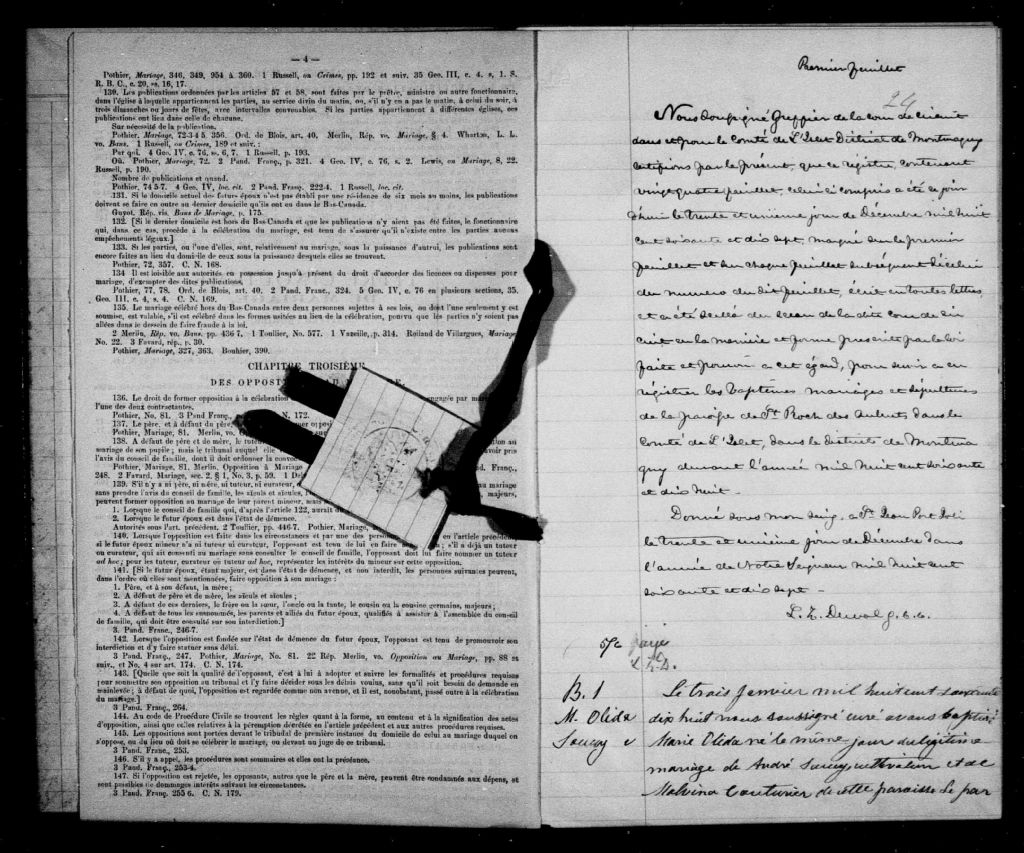 — 4 —
Pothier, Mariage, 346, 349, 954 à 360. 1 Russell, on Crimes, pp. 192 et suiv. 35 Geo. III, c. 4. s, 1. S.
R. B. C., c. 20, ss. 16, 17.
130. Les publications ordonnées par les articles 57 et 58, sont faites par le prêtre, ministre ou autre fonctionnaire,
dans l'église à laquelle appartiennent les parties, au service divin du matin, ou, s'il n'y en a pas le matin, à celui du soir, à
trois dimanches ou jours de fêtes, avec intervalles convenables. Si les parties appartiennent à différentes églises, ces
publications ont lieu dans celle de chacune.
Sur nécessité de la publication.
Pothier, Mariage, 72-3-4 5. 356. Ord. de Blois, art. 40, Merlin, Rép. vo. Mariage, § 4. Wharton, L. L.
vo. Bans. 1 Russell, on Crimes, 189 et suiv. :
Par qui. 4 Geo. IV, c. 76, ss. 6, 7. 1 Russell, p. 193.
Où. Pothier, Mariage, 72. 2 Pand. Franç., p. 321. 4 Geo. IV, c. 76, s. 2. Lewis, on Mariage, 8, 22.
Russell, p. 190.
Nombre de publications et quand.
Pothier, 74 5-7. 4 Geo. IV, loc. cit. 2 Pand. Franç. 222-4. 1 Russell, loc. cit.
131. Si le domicile actuel des futurs époux n'est pas établi par une résidence de six mois au moins, les publications
doivent se faire en outre au dernier domicile qu'ils ont eu dans le Bas-Canada.
Guyot. Rép. vis. Bans de Mariage, p. 175.
132. [Si le dernier domicile est hors du Bas-Canada et que les publications n'y aient pas été faites, le fonctionnaire
qui, dans ce cas, procède à la célébration du mariage, est tenu de s'assurer qu'il n'existe entre les parties aucuns
empêchements légaux.]
133. Si les parties, ou l'une d'elles, sont, relativement au mariage, sous la puissance d'autrui, les publications sont
encore faites au lieu du domicile de ceux sous la puissance desquels elles se trouvent.
Pothier, 72, 357. C. N. 168.
134 Il est loisible aux autorités en possession jusqu'à présent du droit d'accorder des licences ou dispenses pour
mariage, d'exempter des dites publications.
Pothier, 77, 78. Ord. de Blois, art. 40. 2 Pand. Franç., 324. 5 Geo. IV, c. 76 en plusieurs sections, 35.
Geo. III, c. 4, s. 4. C. N. 169.
135. Le mariage célébré hors du Bas-Canada entre deux personnes sujettes à ses lois, ou dont l'une seulement y est
soumise, est valable, s'il est célébré dans les formes usitées au lieu de la célébration, pourvu que les parties n'y soient pas
allées dans le dessein de faire fraude à la loi.
2 Merlin, Rép. vo. Bans. pp. 436 7. 1 Toullier, No. 577. 1 Vazeille, p. 314. Rolland de Villargues, Mariage
No. 22. 3 Favard, rép., p. 30.
Pothier, Mariage, 327, 363. Bouhier, 390.
CHAPITRE TROISIÈME
DES OPPOSIT
136. Le droit de former opposition à la célébration engagée par mar
l'une des deux contractantes.
Pothier, No. 81. 3 Pand Franç., N. 172.
137. Le père, et à défaut du père
Pothier, Mariage, 81. Merlin, vo.
138. A défaut de père et de mère, le tuteur
mariage de son pupille ; mais le tribunal auquel
l'avis du conseil de famille, dont il doit ordonner la convoc
Pothier, Mariage, 81. Merlin, Opposition à Mariage
248. 2 Favard, Mariage, sec. 2, § 1, No. 3, p. 59.
139. S'il n'y a ni père, ni mère, ni tuteur, ni curateur, au mariage
sans prendre l'avis du conseil de famille, les aïeuls et aïeules, majeurs,
peuvent former opposition au mariage de leur parent mineur
1. Lorsque le conseil de famille qui, d'après l'article 122, aurait d
2. Lorsque le futur époux est dans l'état de démence.
Autorités sous l'art. précédent. 2 Toullier, pp. 446-7. Pothier, Mariage,
140. Lorsque l'opposition est faite dans les circonstances et par une des person en l'article précédent,
si le futur époux mineur n'a ni tuteur ni curateur, l'opposant est tenu de lui en faire nom ; s'il a déjà un tuteur
ou curateur, qui ait consenti au mariage sans consulter le conseil de famille, l'opposant doit lui faire nommer un tuteur
ad hoc ; pour les tuteur, curateur ou tuteur ad hoc, représenter les intérêts du mineur sur cette opposition.
141. [Si le futur époux, étant majeur, est dans l'état de démence, et non interdit, les personnes suivantes peuvent,
dans l'ordre où elles sont mentionnées, faire opposition à son mariage :
1. Père, et à son défaut, la mère ;
2. A défaut de père et de mère, les aïeuls et aïeules ;
3. A défaut de ces derniers, le frère ou la sœur, l'oncle ou la tante, le cousin ou la cousine germains, majeurs ;
4. A défaut de tous les susnommés, les parents et alliés du futur époux, qualifiés à assister à l'assemblée du conseil
de famille, qui doit être consulté sur son interdiction.]
3. Pand. Franc., 246-7.
142. Lorsque l'opposition est fondée sur l'état de démence du futur époux, l'opposant est tenu de promouvoir son
interdiction et d'y faire statuer sans délai.
3 Pand. Franç., 247. Pothier, Mariage, No. 81. 22 Rép. Merlin, vo. Opposition au Mariage, pp. 88 et
suiv., et No. 4 sur art. 174. C. N. 174.
143. [Quelle que soit la qualité de l'opposant, c'est à lui à adopter et suivre les formalités et procédures requises
pour soumettre son opposition au tribunal et l'y faire décider sous les délais voulus, sans qu'il soit besoin de demande en
mainlevée ; à défaut de quoi, l'opposition est regardée comme non avenue, et il est, nonobstant, passé outre à la célébration
du mariage.]
3 Pand. Franc., 264.
144. Au code de Procédure Civile se trouvent les règles quant à la forme, au contenu et à la signification des actes
d'opposition, ainsi que celles relatives à la péremption décrétée en l'article précédent et aux autres procédures requises.
145. Les oppositions sont portées devant le tribunal de première instance du domicile de celui au mariage duquel on
s'oppose, ou du lieu où doit se célébrer le mariage, ou devant un juge de ce tribunal.
3 Pand. Franc., 253.
146. S'il y a appel, les procédures sont sommaires et elles ont la préséance.
3 Pand. Franç., 253-4.
147. Si l'opposition est rejetée, les opposants, autres que le père et la mère, peuvent être condamnés aux dépens, et
sont passibles de dommages intérêts suivant les circonstances.
3 Pand. Franç. 255 6. C. N. 179.
Premier feuillet
24
Nous soussigné Greffier de la cour de circuit
dans et pour le Comté de L'Islet District de Montmagny
certifions par le présent, que ce registre, contenant
vingt quatre feuillets, celui ci compris a été ce jour
d'hui le trente et unième jour de Décembre mil huit
cent soixante et dix sept, marqué sur le premier
feuillet et sur chaque feuillet subséquent d'icelui
du numero du dit feuillet, écrit en toutes lettres,
et a été scellé du sceau de la dite cour de cir
cuit en la manière et forme prescrite par la loi
faite et pourvu a cet égard, pour servir a en
régistrer les baptêmes mariages et sépultures
de la paroisse de St Roch des Aulnets dans le
Comté de L'Islet, dans le District de Montma
gny durant l'année mil huit cent soixante
et dix huit -
Donné sous mon seing a St Jean Port Joli
le trente et unième jour de Décembre dans
l'année de Notre Seigneur mil huit cent
soixante et dix sept -
L. Z. Duval g. c. c.
B. 1
M. Olida
Soucy
Le trois janvier mil huit cent soixante
dix huit nous soussigné curé avons baptisé
Marie Olida né le même jour du légitime
mariage de André Soucy, cultivateur et de
Malvina Couturier de cette paroisse Le par